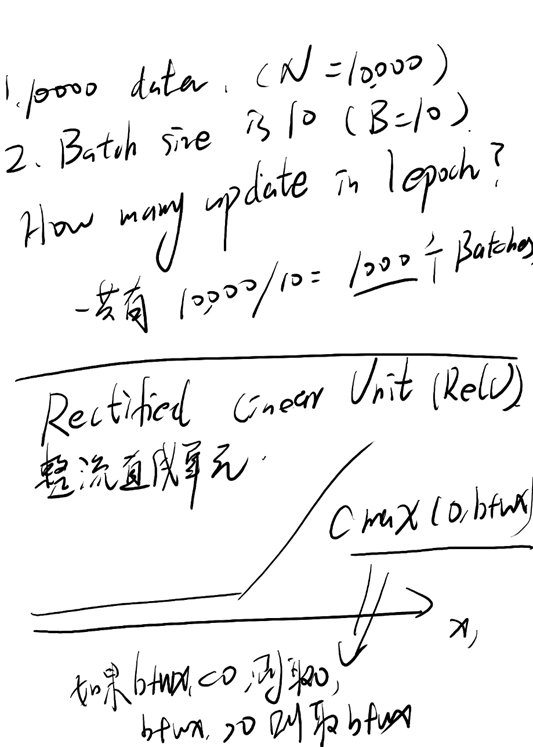 1. 10000 data. (N=10,000)
2. Batch size is 10 (B=10).
How many update in 1 epoch?
一共有 10,000/10 = 1000个 Batches
Rectified Linear Unit (ReLU)
整流直线单元.
C max(0, b+wx)
x,
如果 b+wx, <0, 则取0,
b+wx, >0 则取 b+wx